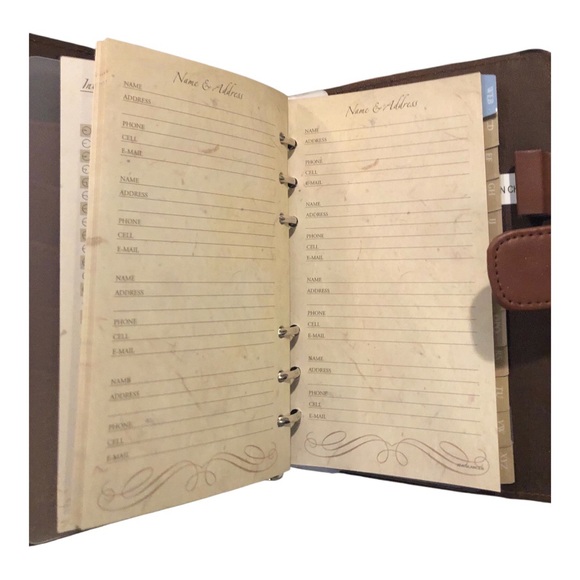 Name & Address
NAME
ADDRESS
PHONE
CELL
E-MAIL
NAME
ADDRESS
PHONE
CELL
E-MAIL
NAME
ADDRESS
PHONE
CELL
E-MAIL
NAME
ADDRESS
PHONE
CELL
E-MAIL
Name & Address
NAME
ADDRESS
PHONE
CELL
E-MAIL
NAME
ADDRESS
PHONE
CELL
E-MAIL
NAME
ADDRESS
PHONE
CELL
E-MAIL
NAME
ADDRESS
PHONE
CELL
E-MAIL
N CH